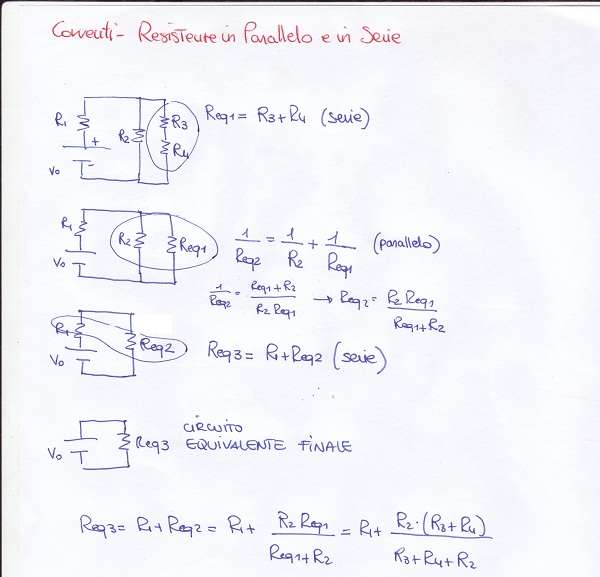 Correnti - Resistenze in Parallelo e in Serie
R1
+
-
V0
R2
R3
R4
Req1 = R3 + R4 (serie)
R1
V0
R2
Req1
1/Req2 = 1/R2 + 1/Req1 (parallelo)
1/Req2 = Req1 + R2/R2 Req1 → Req2 = R2 Req1/Req1 + R2
R1
V0
Req2
Req3 = R1 + Req2 (serie)
V0
Req3
CIRCUITO
EQUIVALENTE FINALE
Req3 = R1 + Req2 = R1 + R2 Req1/Req1 + R2 = R1 + R2 · (R3 + R4)/R3 + R4 + R2